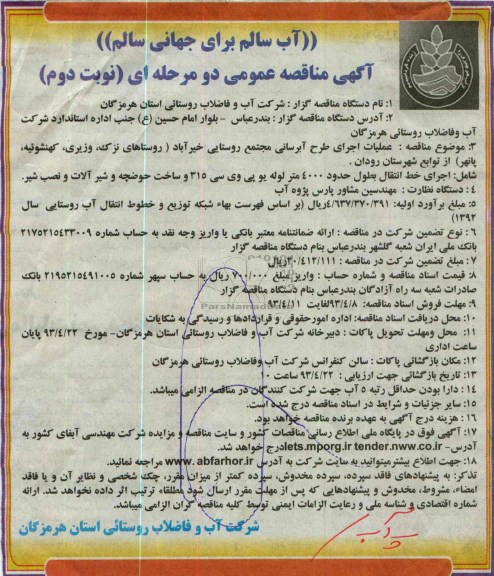 ((آب سالم برای جهانی سالم))
آگهی مناقصه عمومی دو مرحله ای (نوبت دوم)
۱: نام دستگاه مناقصه گزار : شرکت آب و فاضلاب روستائی استان هرمزگان
۲: آدرس دستگاه مناقصه گزار : بندرعباس – بلوار امام حسین (ع) جنب اداره استاندارد شرکت
آب وفاضلاب روستائی هرمزگان
۳: موضوع مناقصه : عملیات اجرای طرح آبرسانی مجتمع روستایی خیرآباد ( روستاهای نزک، وزیری، کهنشوئیه،
پانهر) از توابع شهرستان رودان .
شامل: اجرای خط انتقال بطول حدود ۴۰۰۰ متر لوله یو پی وی سی ۳۱۵ و ساخت حوضچه و شیر آلات و نصب شیر.
۴ : دستگاه نظارت : مهندسین مشاور پارس پژوه آب
۵: مبلغ برآورد اولیه: ۴/۶۳۷/۳۷۰/۳۹۱ریال (بر اساس فهرست بهاء شبکه توزیع و خطوط انتقال آب روستایی سال
۱۳۹۲)
۶ : نوع تضمین شرکت در مناقصه : ارائه ضمانتنامه معتبر بانکی یا واریز وجه نقد به حساب شماره ۲۱۷۵۲۱۵۴۳۳۰۰۹
بانک ملی ایران شعبه گلشهر بندرعباس بنام دستگاه مناقصه گزار
۷: مبلغ تضمین شرکت در مناقصه : ۲۳۰/۴۱۲/۱۱۱ریال
۸: قیمت اسناد مناقصه و شماره حساب : واریز مبلغ ۷۰۰/۰۰۰ ریال به حساب سپهر شماره ۲۱۹۵۲۱۵۴۹۱۰۰۵ بانک
صادرات شعبه سه راه آزادگان بندرعباس بنام دستگاه مناقصه گزار
۹: مهلت فروش اسناد مناقصه: ۹۳/۴/۸لغایت ۹۳/۴/۱۱
۱۰: محل دریافت اسناد مناقصه: اداره امورحقوقی و قراردادها و رسیدگی به شکایات
۱۱: محل ومهلت تحویل پاکات : دبیرخانه شرکت آب و فاضلاب روستائی استان هرمزگان– مورخ ۹۳/۴/۲۲ پایان
ساعت اداری
۱۲: مکان بازگشائی پاکات : سالن کنفرانس شرکت آب وفاضلاب روستائی هرمزگان
۱۳: تاریخ بازگشائی جهت ارزیابی : ۹۳/۴/۲۲ ساعت ۱۰
۱۴ : دارا بودن حداقل رتبه ۵ آب جهت شرکت کنندگان در مناقصه الزامی میباشد.
۱۵: سایر جزئیات و شرایط در اسناد مناقصه درج شده است.
۱۶ : هزینه درج آگهی به عهده برنده مناقصه خواهد بود.
۱۷: آگهی فوق در پایگاه ملی اطلاع رسانی مناقصات کشور و سایت مناقصه و مزایده شرکت مهندسی آبفای کشور به
آدرس- iets.mporg.ir tender.nww.co.irدرج خواهد شد.
۱۸: جهت اطلاع بیشترمیتوانید به سایت شرکت به آدرس www. abfarhor.ir مراجعه نمائید.
تذکر: به پیشنهادهای فاقد سپرده، سپرده مخدوش، سپرده کمتر از میزان مقرر، چک شخصی و نظایر آن و یا فاقد
امضاء، مشروط، مخدوش و پیشنهادهایی که پس از مهلت مقرر ارسال شود مطلقاء ترتیب اثر داده نخواهد شد. ارائه
شماره اقتصادی و شناسه ملی و رعایت الزامات ایمنی توسط کلیه مناقصه گران الزامی میباشد.
شرکت آب و فاضلاب روستائی استان هرمزگان